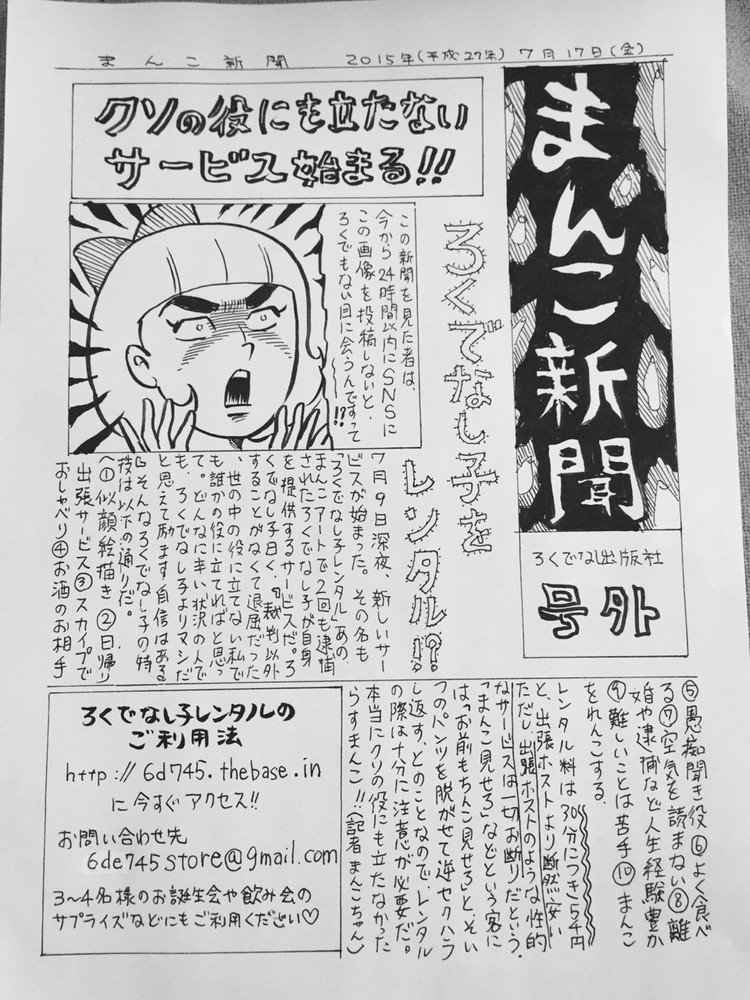 まんこ新聞 2015年(平成27年) 7月17日(金)
まんこ新聞
ろくでなし出版社
号外
クソの役にも立たない
サービス始まる!!
ろくでなし子を
レンタル!?
この新聞を見た者は、
今から24時間以内にSNSに
この画像を投稿しないと、
ろくでもない目に会うんですって
〜〜!?
7月9日深夜、新しいサー
ビスが始まった。その名も
「ろくでなし子レンタル」あの
まんこアートで2回も逮捕
されたろくでなし子が自身
を提供するサービスだ。ろ
くでなし子曰く、「裁判以外
することがなくて退屈だった
、世の中の役に立てない私で
も誰かの役に立てればと思っ
て。どんなに辛い状況の人で
も、ろくでなし子よりマシだ
と思えて励ます自信はある
」そんなろくでなし子の特
技は以下の通りだ。
①似顔絵描き ②日帰り
出張サービス③スカイプで
おしゃべり④お酒のお相手
⑤愚痴聞き役 ⑥よく食べ
る⑦空気を読まない⑧離
婚や逮捕など人生経験豊か
⑨難しいことは苦手⑩まんこ
をれんこする
レンタル料は30分につき54円
と、出張ホストより断然安い
ただし出張ホストのような性的
なサービスは一切お断りだという。
「まんこ見せろ」などという客に
は「お前もちんこ見せろ」と、そい
つのパンツを脱がせて逆セクハラ
し返す、とのことなので、レンタル
の際は十分に注意が必要だ。
本当にクソの役にも立たなかった
らすまんこ!!(記者 まんこちゃん)
ろくでなし子レンタルの
ご利用法
http://6d745.thebase.in
に今すぐアクセス!!
お問い合わせ先
6de745store@gmail.com
3〜4名様のお誕生会や飲み会の
サプライズなどにもご利用ください♡